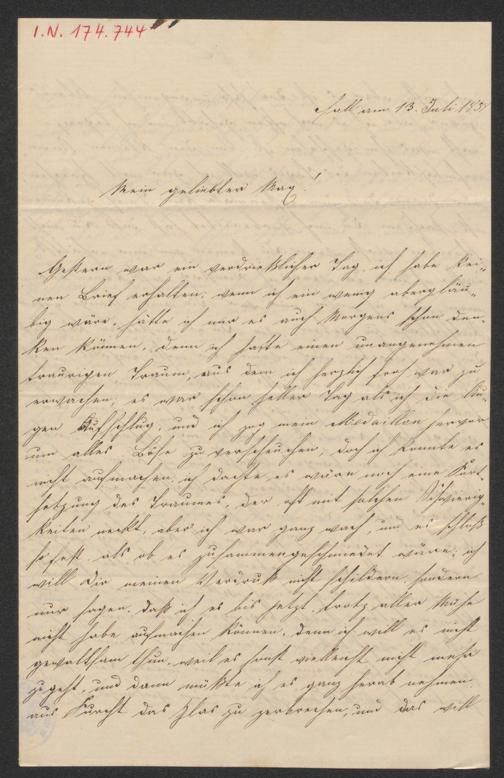 I.N. 174.744
Hall am 13. Juli 185
Mein geliebter Max!
Gestern war ein verdrießlicher Tag ich habe kei-
nen Brief erhalten; wenn ich ein wenig abergläu-
big wäre, hätte ich mir es auch Morgens schon den-
ken können, denn ich hatte einen unangenehmen
traurigen Traum, aus dem ich herzlich froh war zu
erwachen, es war schon heller Tag als ich die Au-
gen aufschlug, und ich zog mein Medaillon hervor
um alles Böse zu verscheuchen, doch ich konnte es
nicht aufmachen, ich dachte es wäre noch eine Fort-
setzung des Traumes, der oft mit solchen Schwierig-
keiten neckt, aber ich war ganz wach, und es schloß
so fest, als ob es zusammengeschmiedet wäre, ich
will Dir meinen Verdruß nicht schildern, sondern
nur sagen, daß ich es bis jetzt, trotz aller Mühe
nicht habe aufmachen können, denn ich will es nicht
gewaltsam thun, weil es sonst vielleicht nicht mehr
zugeht, und dann müßte ich es ganz herab nehmen,
aus Furcht das Glas zu zerbrechen, und das will